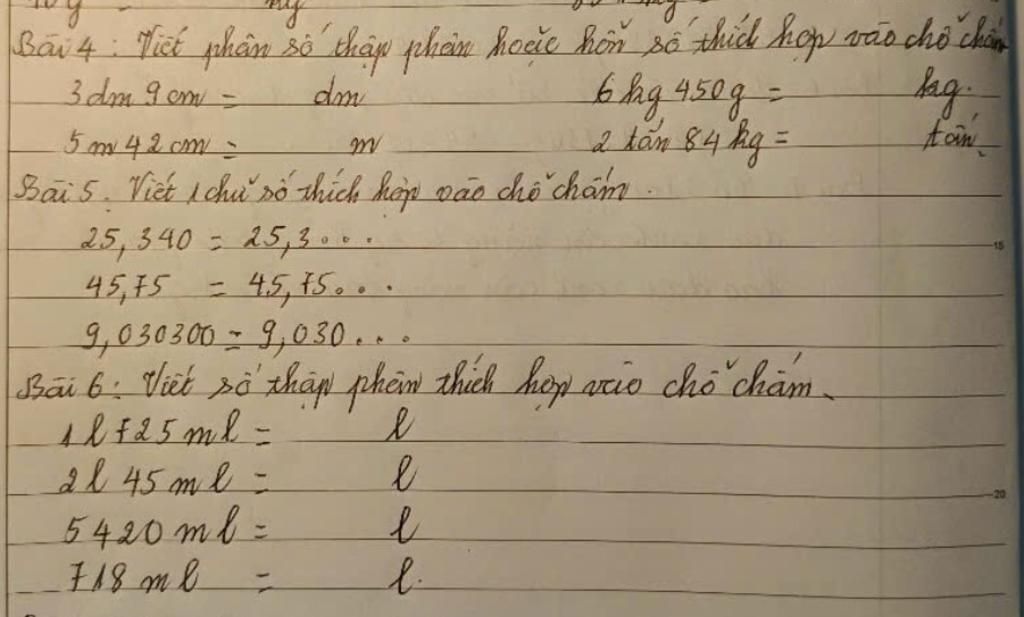 Bài 4 : Viết phân số thập phân hoặc hỗn số thích hợp vào chỗ chấm
3dm 9cm = dm 6 kg 450g = kg.
5m 42cm = m 2 tấn 84 kg = tấn.
Bài 5. Viết 1 chữ số thích hợp vào chỗ chấm.
25,340 = 25,3...
45,75 = 45,75...
9,030300 = 9,030...
Bài 6 : Viết số thập phân thích hợp vào chỗ chấm.
1l 725 ml = l
2l 45 ml = l
5420 ml = l
718 ml = l.
15
20